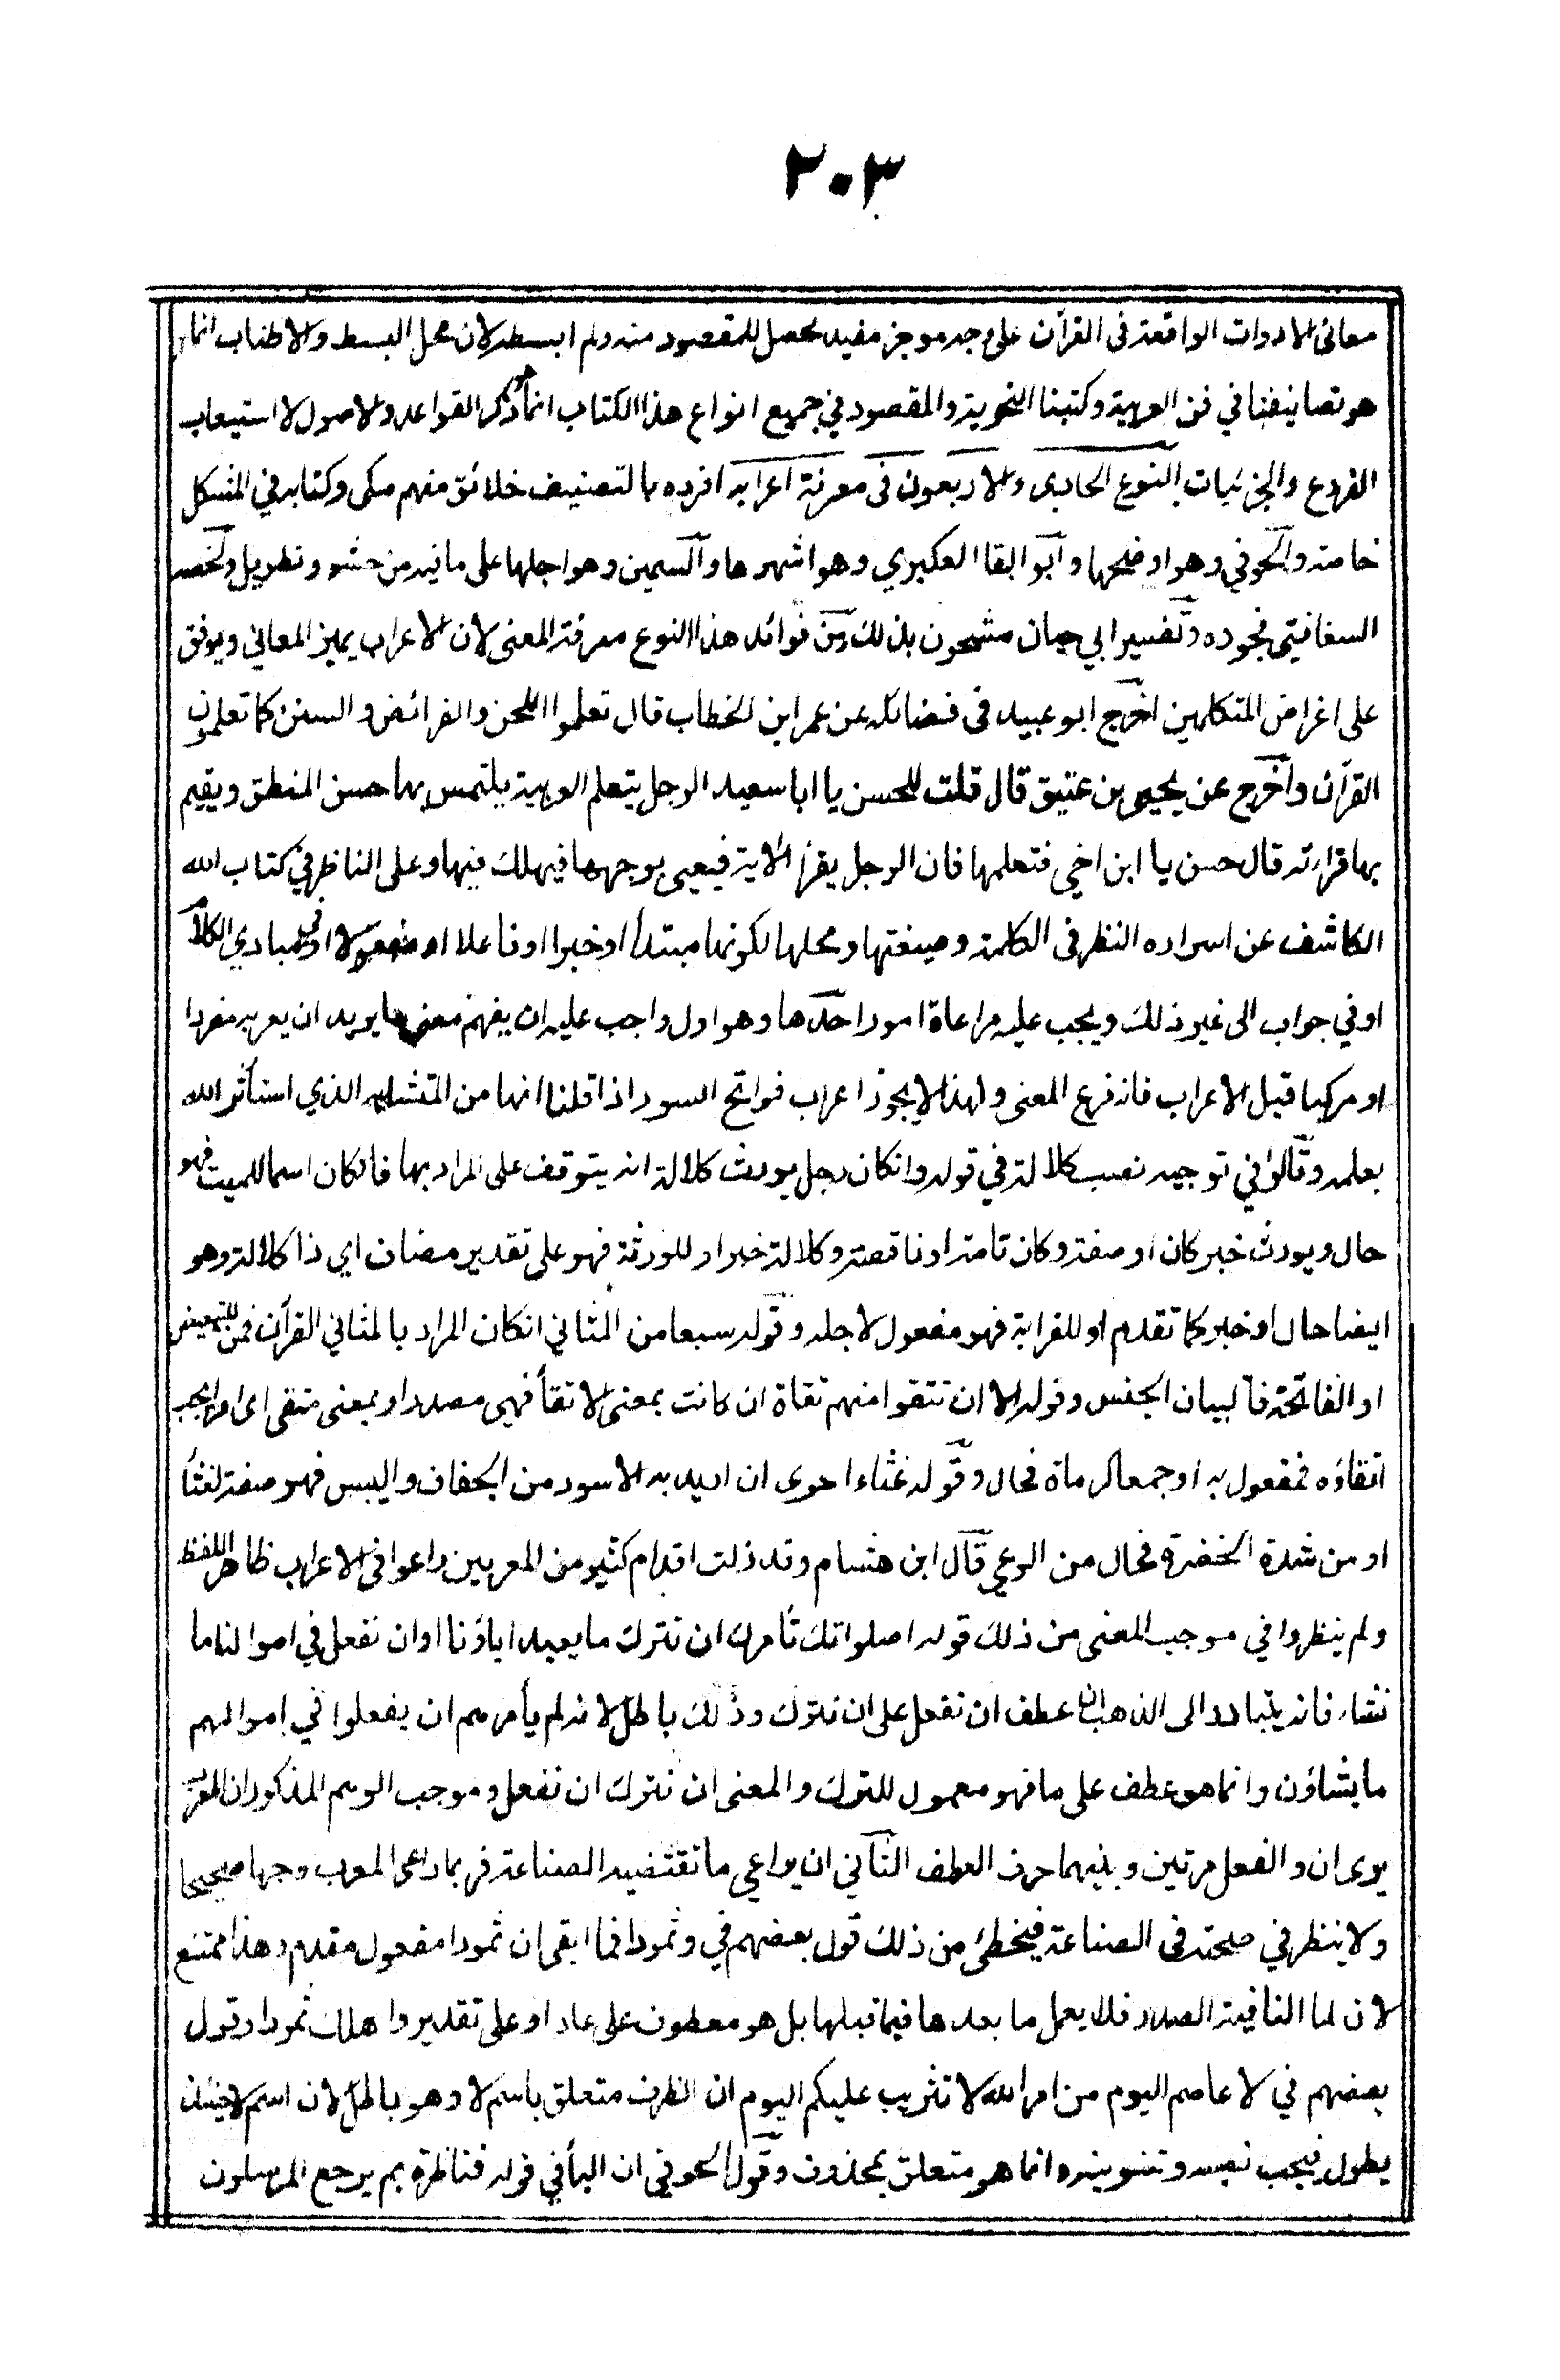 ٢٠٣
معانى الادوات الواقعة فى القرآن على وجه موجز مفيد محصل للمقصود منه ولم ابسطه لان محل البسط والاطناب انما
هو تصانيفنا في فن العربية وكتبنا النحوية والمقصود في جميع انواع هذا الكتاب انما هو ذكر القواعد والاصول لا استيعاب
الفروع والجزئيات النوع الحادى والاربعون فى معرفة اعرابه افرده بالتصنيف خلائق منهم مكى وكتابه في المشكل
خاصة والحوفي وهو اوضحها وابو البقا العكبري وهو اشهرها والسمين وهو اجلها على ما فيه من حشو وتطويل ولخصه
السفاقيتى فجوده وتفسير ابي حيان مشحون بذلك ومن فوائد هذا النوع معرفة المعنى لان الاعراب يميز المعاني ويوقف
على اغراض المتكلمين اخرج ابو عبيد فى فضائله عن عمر ابن الخطاب قال تعلموا اللحن والفرائض والسنن كما تعلمون
القرآن واخرج عن يحيى بن عتيق قال قلت للحسن يا ابا سعيد الرجل يتعلم العربية يلتمس بها حسن المنطق ويقيم
بها قراءته قال حسن يا ابن اخي فتعلمها فان الرجل يقرأ الاية فيعيى بوجهها فيهلك فيها وعلى الناظر في كتاب الله
الكاشف عن اسراره النظر فى الكلمة وصيغتها ومحلها لكونها مبتدأ او خبرا او فاعلا او مفعولا او في مبادي الكلام
او في جواب الى غير ذلك ويجب عليه مراعاة امور احدها وهو اول واجب عليه ان يفهم معنى ما يريد ان يعربه مفردا
او مركبا قبل الاعراب فانه فرع المعنى ولهذا لا يجوز اعراب فواتح السور اذا قلنا انها من المتشابه الذي استأثر الله
بعلمه وقالوا في توجيه نصب كلالة في قوله وان كان رجل يورث كلالة انه يتوقف على المراد بها فان كان اسما للميت فهو
حال ويورث خبر كان او صفة وكان تامة او ناقصة وكلالة خبر او للورثة فهو على تقدير مضاف اي ذا كلالة وهو
ايضا حال او خبر كما تقدم او للقرابة فهو مفعول لاجله وقوله سبعا من المثاني ان كان المراد بالمثاني القرآن فمن للتبعيض
او الفاتحة فلبيان الجنس وقوله الا ان تتقوا منهم تقاة ان كانت بمعنى الاتقأ فهي مصدر او بمعنى متقى اى امرا يجب
اتقاؤه فمفعول به او جمعا كرماة فحال وقوله غثاء احوى ان اريد به الاسود من الجفاف واليبس فهو صفة لغثأ
او من شدة الخضرة فحال من المرعي قال ابن هشام وقد زلت اقدام كثير من المعربين راعوا فى الاعراب ظاهر اللفظ
ولم ينظروا في موجب المعنى من ذلك قوله اصلواتك تأمرك ان نترك ما يعبد اباؤنا او ان نفعل في اموالنا ما
نشاء فانه يتبادر الى الذهن عطف ان نفعل على ان نترك وذلك باطل لانه لم يأمرهم ان يفعلوا في اموالهم
ما يشاؤن وانما هو عطف على ما فهو معمول للترك والمعنى ان نترك ان نفعل وموجب الوهم المذكور ان المعرب
يرى ان والفعل مرتين وبينهما حرف العطف الثاني ان يراعي ما تقتضيه الصناعة فربما راعى المعرب وجها صحيحا
ولا ينظر في صحته فى الصناعة فيخطئ من ذلك قول بعضهم في وثمودا فما ابقى ان ثمودا مفعول مقدم وهذا ممتنع
لان لما النافية الصدر فلا يعمل ما بعدها فيما قبلها بل هو معطوف على عاد او على تقدير واهلك ثمودا وقول
بعضهم في لا عاصم اليوم من امر الله لا تثريب عليكم اليوم ان الظرف متعلق باسم لا وهو باطل لان اسم لا حينئذ
يطول فيجب نصبه وتنوينه وانما هو متعلق بمحذوف وقول الحوفي ان البأ في قوله فناظرة بم يرجع المرسلون